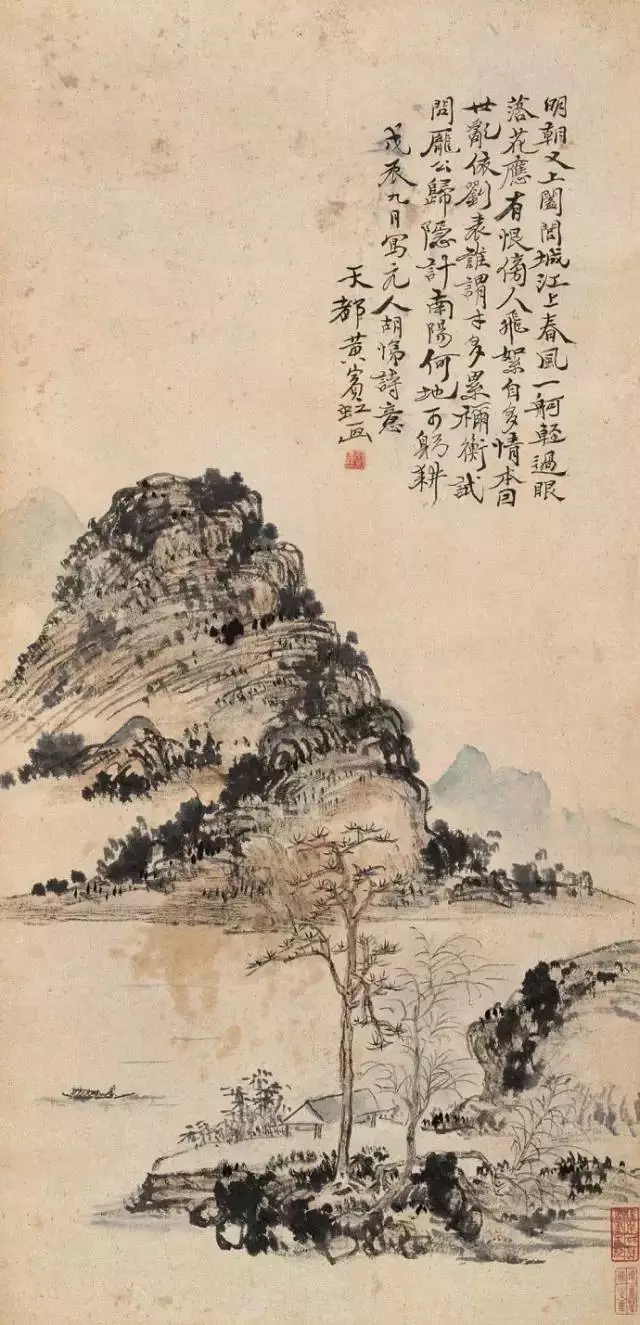 明朝又上闔閭城江上春風一舸輕過眼
落花應有恨傍人飛絮自多情本因
世亂依劉表誰謂才多累禰衡試
問龐公歸隱計南陽何地可躬耕
戊辰九月寫元人胡
詩意
天都黃賓虹画